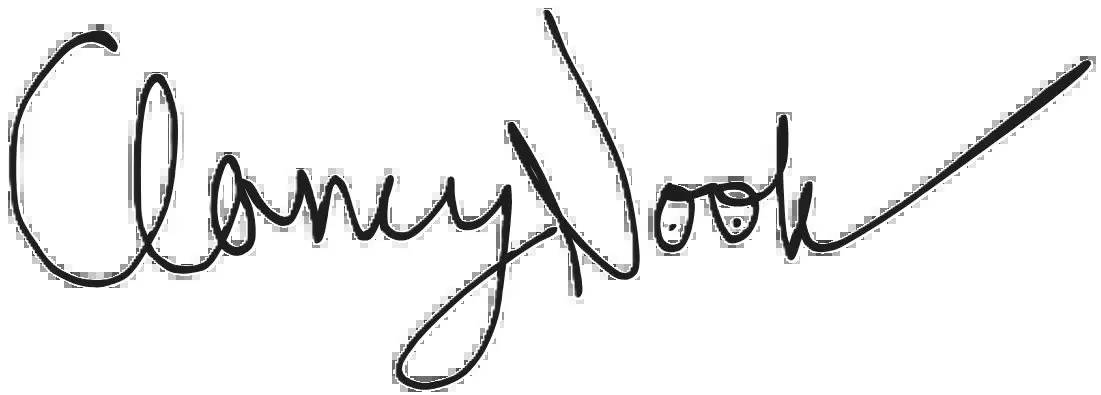 Clancy Nook